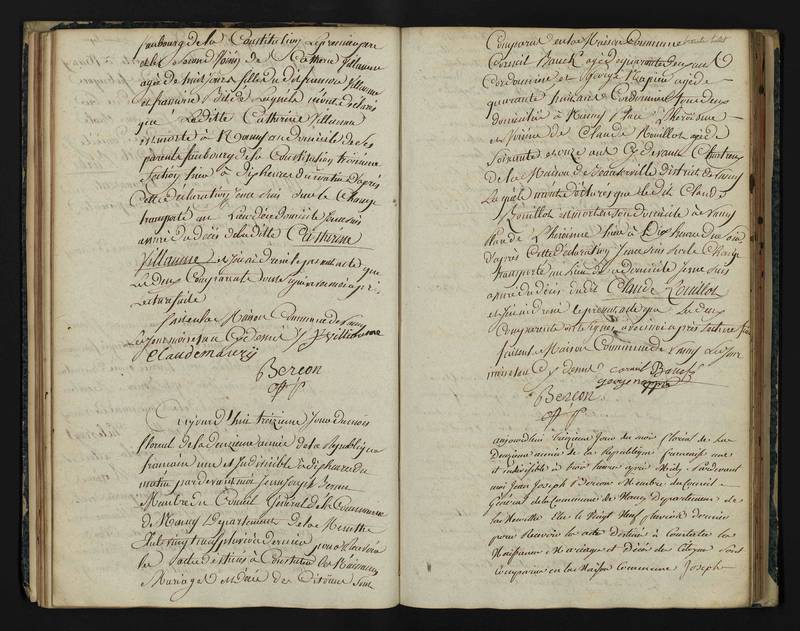 faubourg de la Constitution
et la seconde
agée de huit jours fille du dit françois Villaume
et françoise
que La ditte Catherine Villaume
est morte à Nancy au domicile de ses
parents faubourg de la Constitution troisieme
Section hier à dix heures du matin D'après
Cette declaration je me suis sur le Champ
transporté au Lieu de ce domicile je me suis
assuré du décès de la ditte Catherine
Villaume et j'en ai dressé le present acte que
Les deux Comparants ont signé avec moi après
Lecture faite
fait en la Maison Commune de Nancy
Les Jour mois et an Cy dessus
J Villaume
Claude
Berson
off p
aujourd'hui treizieme Jour du mois
floreal de la deuxieme année de la Republique
francaise une et Indivisible à dix heures du
matin par devant moi Jean Joseph Berson
Membre du Conseil Général de la Commune
de Nancy Departement de la Meurthe
Elu le vingt neuf pluviose dernier pour Recevoir
les actes destinés à Constater les Naissances
Mariages et Décès des Citoyens sont
Comparus en la Maison Commune
agé de quarante deux ans
Cordonnier et George agé de
quarante huit ans Cordonnier tous deux
domiciliés à Nancy place l'heroisme
et voisins de Claude Rouillot agé de
Soixante et onze ans Cy devant Chartreux
de la Maison de Bosserville district de Nancy
Lesquels m'ont déclarés que le dit Claude
Rouillot est mort en son domicile à Nancy
place de L'héroisme hier à Dix heures du soir
d'après Cette declaration je me suis sur le Champ
transporté au Lieu de ce domicile je me suis
assuré du décès du dit Claude Rouillot
et j'en ai dressé le present acte que Les deux
Comparants ont signés avec moi après Lecture faite
fait en la Maison Commune de Nancy Les Jour
mois et an Cy dessus
george
Berson
off p
aujourdhui treizieme jour du mois floreal de la
Deuxieme année de la Republique francaise une
et indivisible à trois heures après Midy Pardevant
moi Jean Joseph Berson Membre du Conseil
Général de la Commune de Nancy Departement de
la Meurthe Elu le Vingt Neuf pluviose dernier
pour Recevoir les actes destinés à Constater les
Naissances Mariages et Décès des Citoyens Sont
Comparus en la Maison Commune Joseph